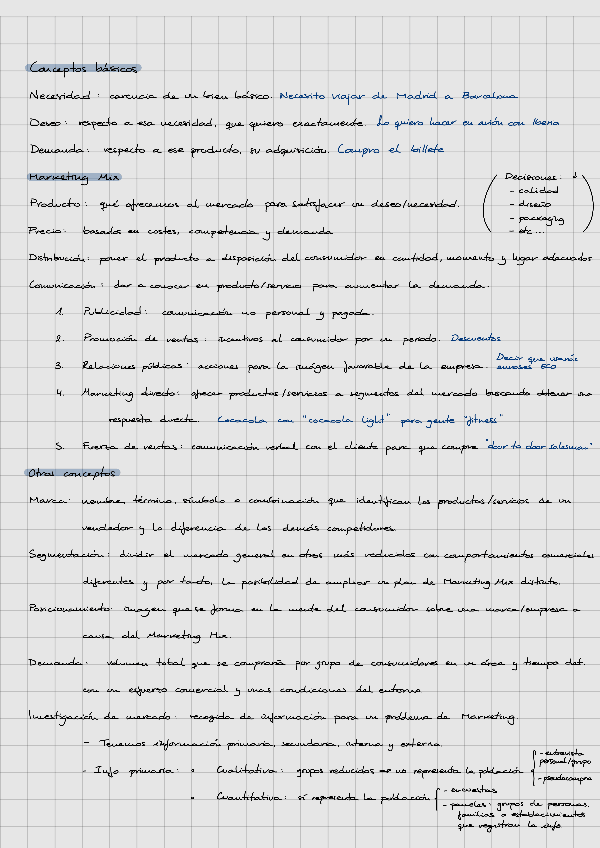 Conceptos básicos
Necesidad: carencia de un bien básico. Necesito viajar de Madrid a Barcelona
Deseo: respecto a esa necesidad, que quiero exactamente. Lo quiero hacer en avión con Iberia
Demanda: respecto a ese producto, su adquisición. Compro el billete
Marketing Mix
Decisiones:
- calidad
- diseño
- packaging
- etc...
Producto: qué ofrecemos al mercado para satisfacer un deseo/necesidad.
Precio: basados en costes, competencia y demanda
Distribución: poner el producto a disposición del consumidor en cantidad, momento y lugar adecuados
Comunicación: dar a conocer un producto/servicio para aumentar la demanda.
1. Publicidad: comunicación no personal y pagada.
2. Promoción de ventas: incentivos al consumidor por un periodo. Descuentos
3. Relaciones públicas: acciones para la imágen favorable de la empresa. Decir que usamos envases ECO
4. Marketing directo: ofrecer productos/servicios a segmentos del mercado buscando obtener una
respuesta directa. Cocacola con "cocacola light" para gente "fitness"
5. Fuerza de ventas: comunicación verbal con el cliente para que compre "door to door salesman"
Otros conceptos
Marca: nombre, término, símbolo o combinación que identifican los productos/servicios de un
vendedor y lo diferencia de los demás competidores.
Segmentación: dividir el mercado general en otros más reducidos con comportamientos comerciales
diferentes y por tanto, la posibilidad de emplear un plan de Marketing Mix distinto.
Poncionamiento: imagen que se forma en la mente del consumidor sobre una marca/empresa a
causa del Marketing Mix.
Demanda: volumen total que se compraría por grupo de consumidores en un área y tiempo det.
con un esfuerzo comercial y unas condiciones del entorno
Investigación de mercado: recogida de información para un problema de Marketing.
- Tenemos información primaria, secundaria, interna y externa.
- Info primaria: • Cualitativa: grupos reducidos no representa la población
- entrevista personal/grupo
- pseudocompra
• Cuantitativa: sí representa la población
- encuestas
- paneles: grupos de personas,
familias o establecimientos
que registran la info